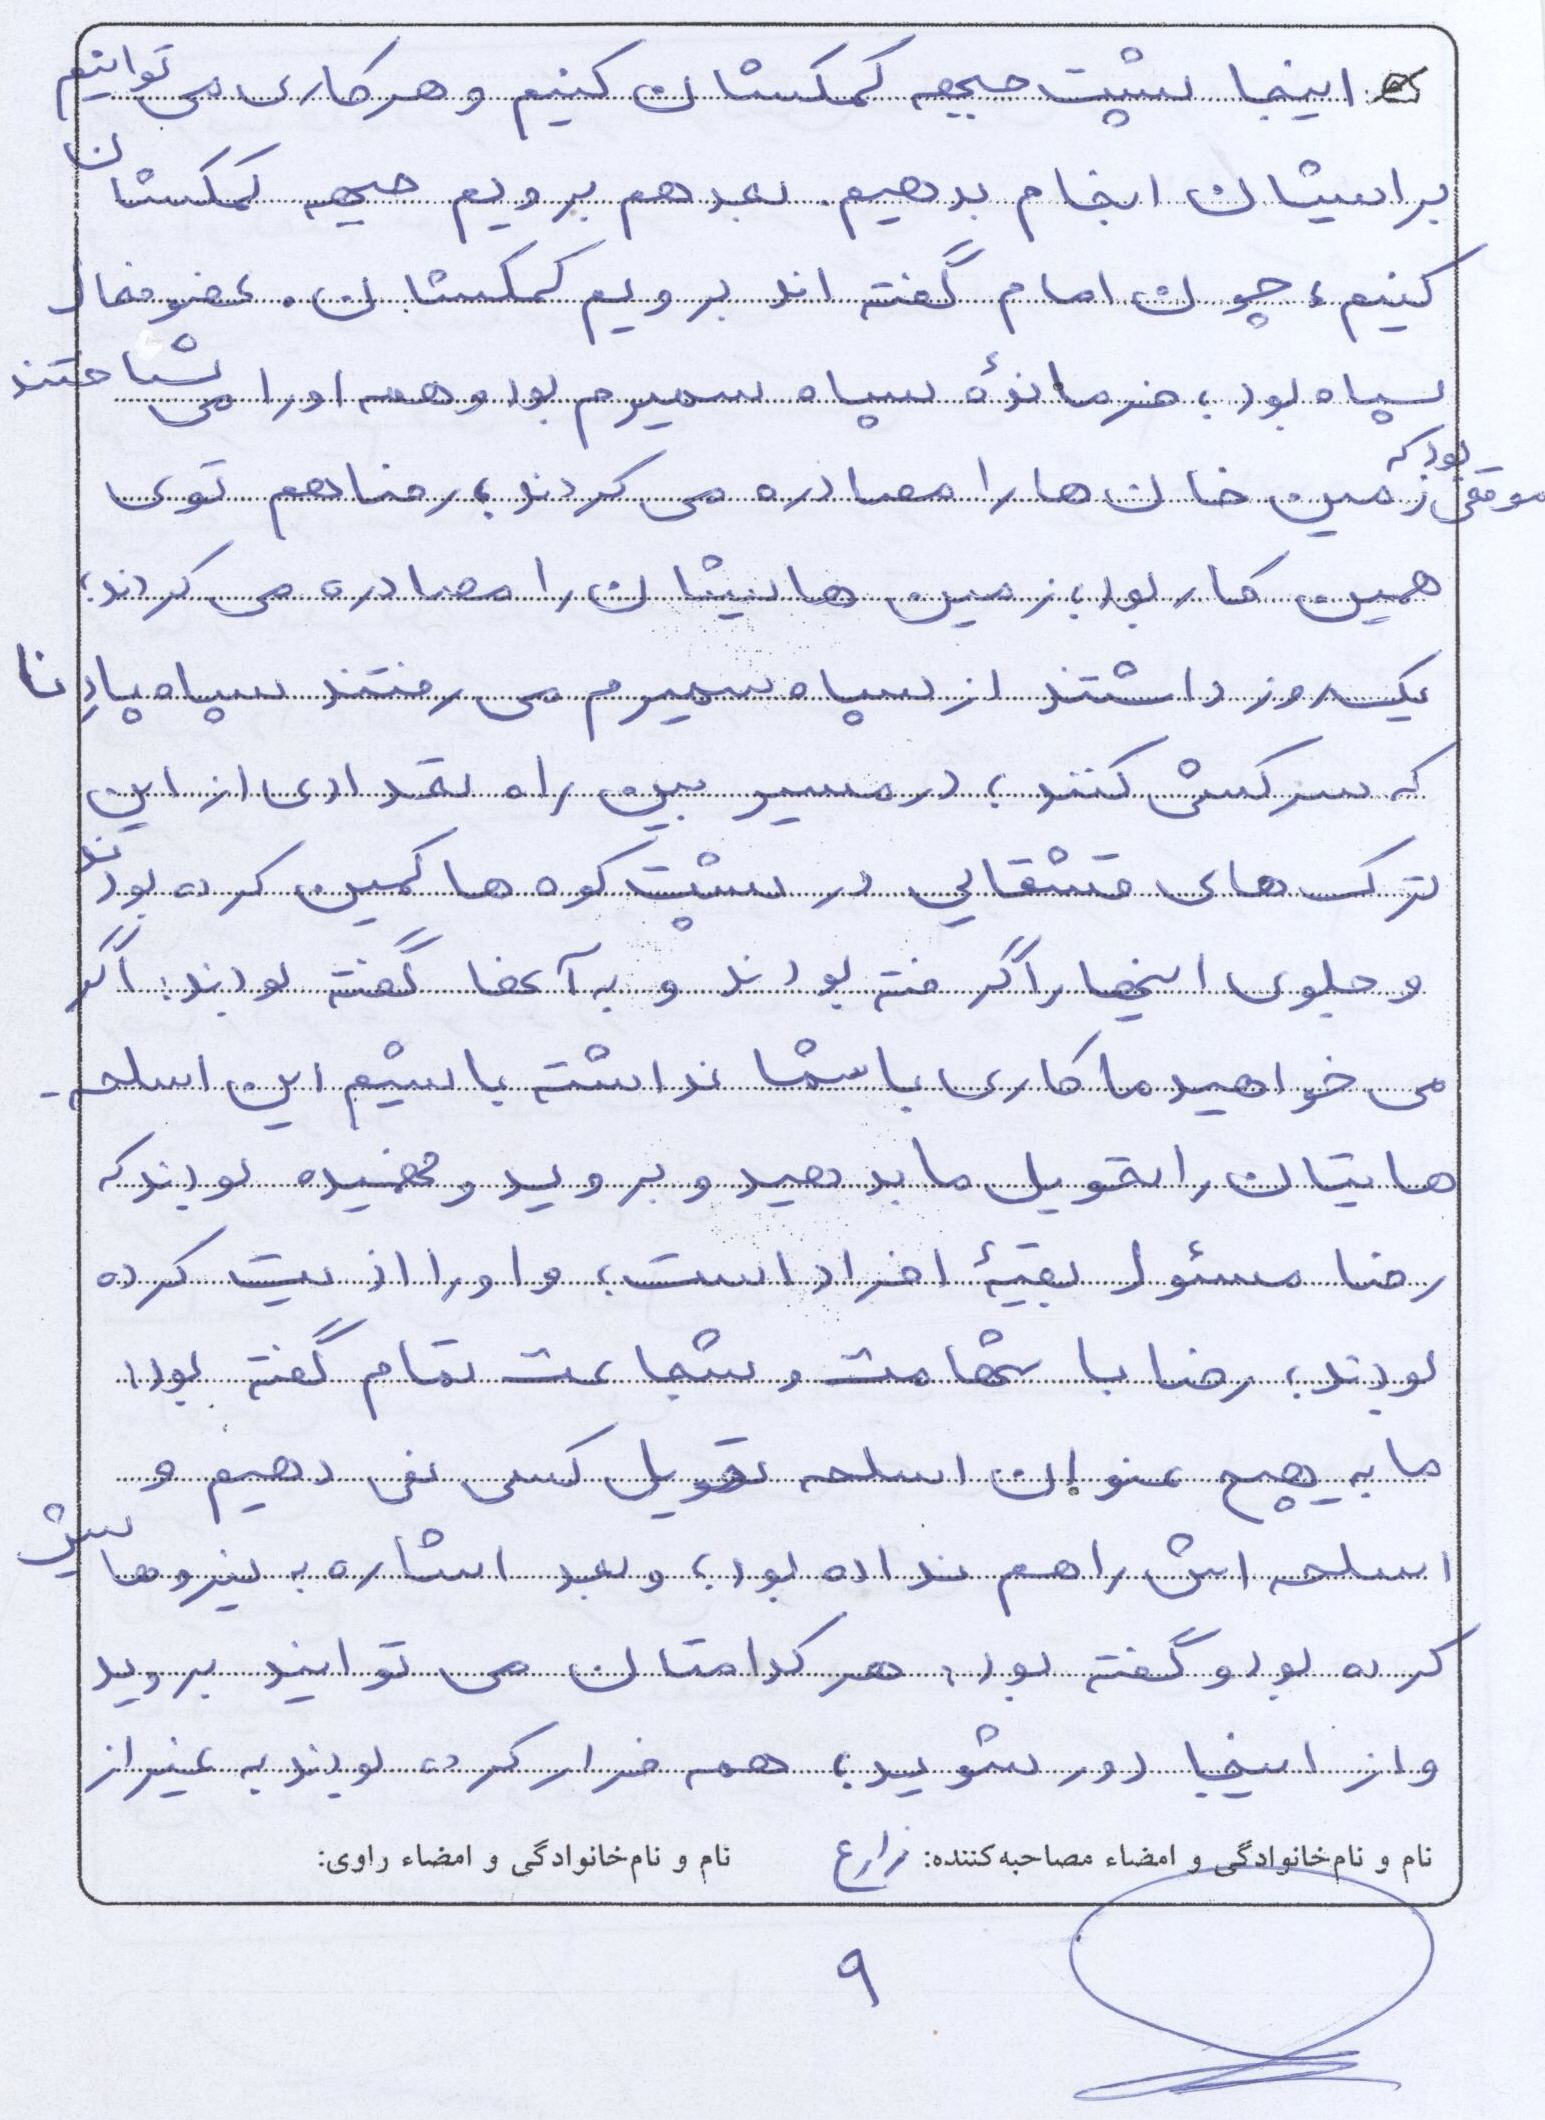 اینجا پشت جبهه کمکشان کنیم و هر کاری می توانیم
برایشان انجام بدهیم. بعد هم برویم جبهه کمکشان
کنیم، چون امام گفته اند برویم کمکشان. عضو فعال
سپاه بود؛ فرماندۀ سپاه سمیرم بود و همه او را می شناختند
موقعی بود که زمین خان ها را مصادره می کردند؛ رضا هم توی
همین کار بود؛ زمین هایشان را مصادره می کردند؛
یک روز داشتند از سپاه سمیرم می رفتند سپاه پادنا
که سرکشی کنند؛ در مسیر بین راه تعدادی از این
ترک های قشقایی در پشت کوه ها کمین کرده بودند
و جلوی اینها را گرفته بودند و به آنها گفته بودند: اگر
می خواهید ما کاری با شما نداشته باشیم این اسلحه-
هایتان را تحویل ما بدهید و بروید و فهمیده بودند که
رضا مسئول بقیۀ افراد است؛ و او را اذیت کرده
بودند؛ رضا با شهامت و شجاعت تمام گفته بود:
ما به هیچ عنوان اسلحه تحویل کسی نمی دهیم و
اسلحه اش را هم نداده بود؛ و بعد اشاره به نیروهایش
کرده بود و گفته بود: هر کدامتان می توانید بروید
و از اینجا دور شوید؛ همه فرار کرده بودند به غیر از
نام و نام‌خانوادگی و امضاء مصاحبه‌کننده: زارع نام و نام‌خانوادگی و امضاء راوی:
۹